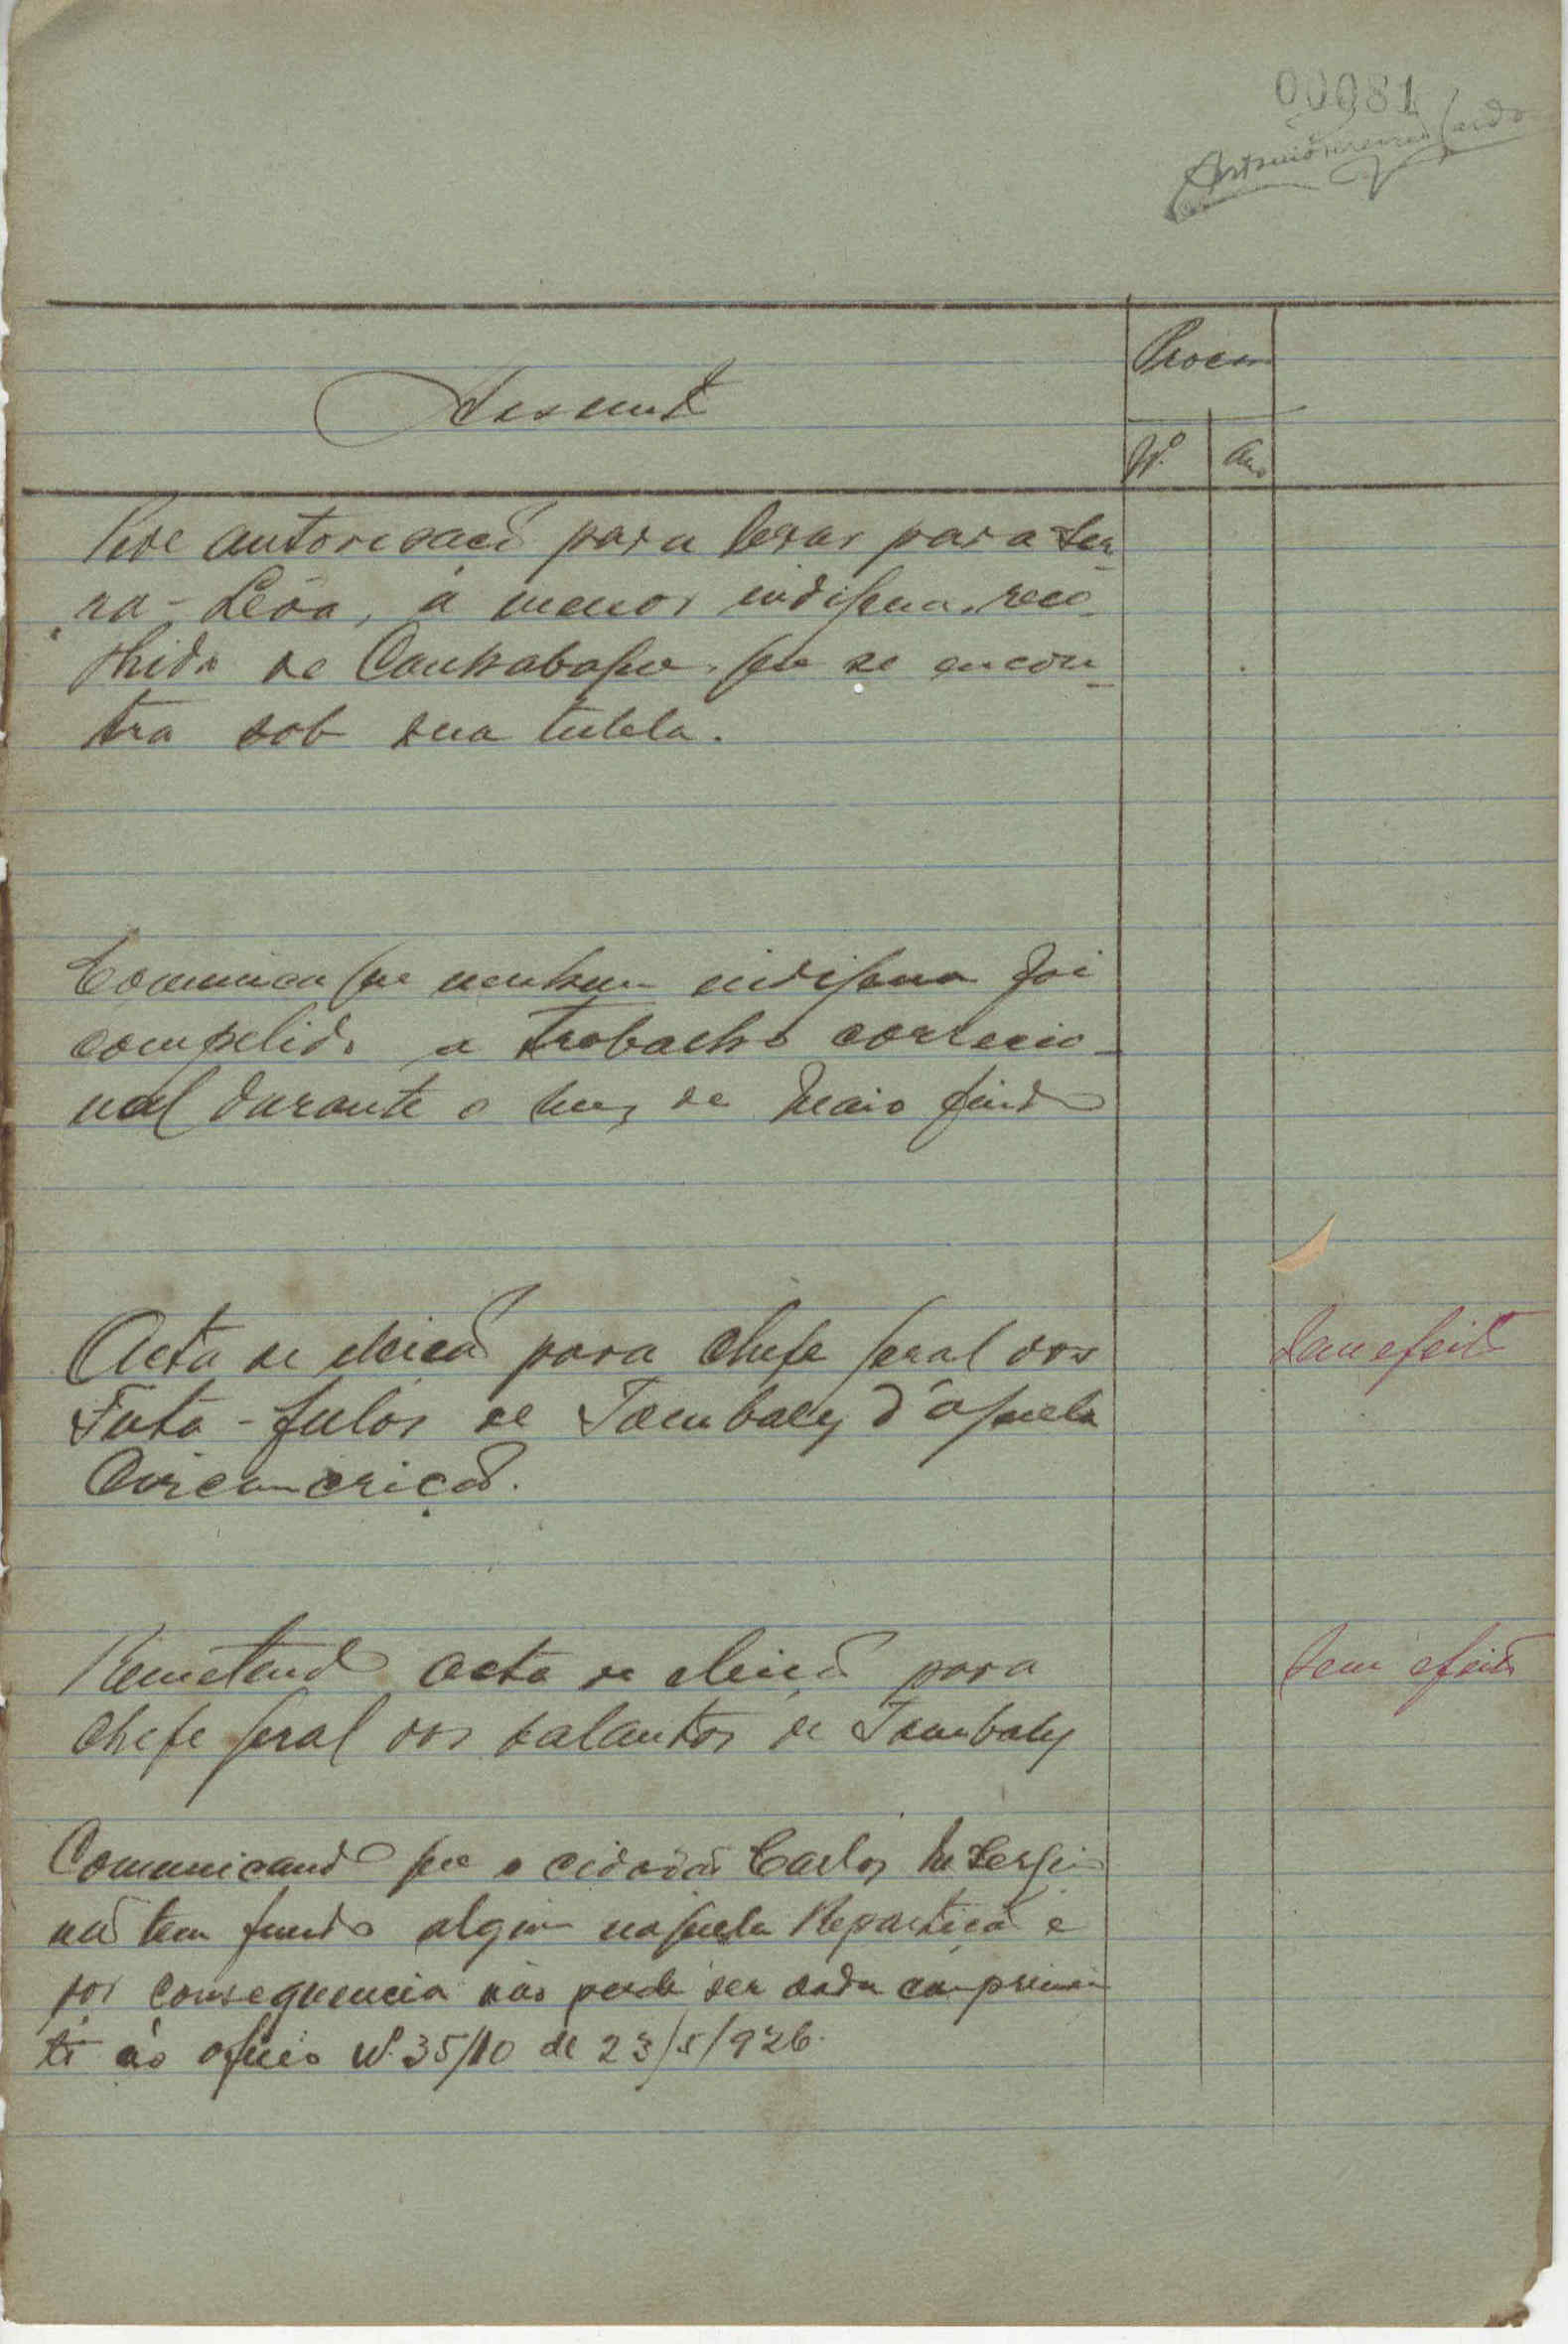 00081
Antonio Pereira Cardo
Assunto
Proces
Nº
Ano
Pede autorisacão para levar para Ser-
ra-Lêoa, a menor indigena, reco-
lhida de Canhabaque que se encon-
tra sob sua tutela.
Comunica que nenhum indigena foi
compelido a trabalho correcio-
nal durante o mez de Maio findo
Acta de eleicão para chefe geral dos
Futa-fulos de Tombaly d'aquela
Circunscrição.
Sem efeito
Remetendo acta de eleição para
chefe geral dos balantas de Tombaly
Sem efeito
Comunicando que o cidadão Carlos
não tem fundo algum naquela Repartição e
por consequencia não pode ser dado cumprimen
to ao oficio Nº 35/10 de 23/5/926.